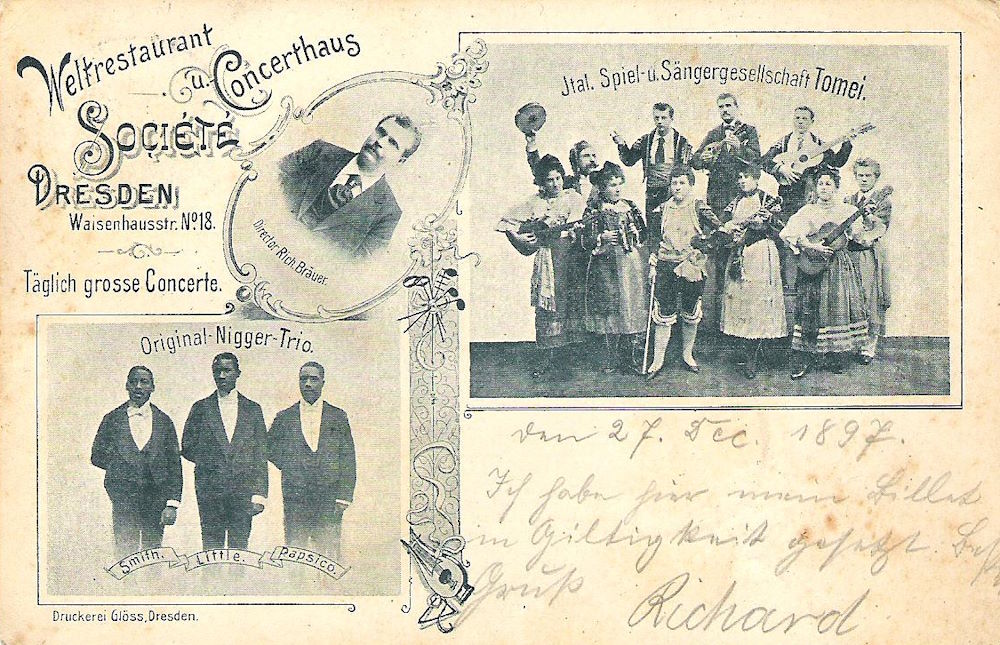 Weltrestaurant
u. Concerthaus
SOCIÉTÉ
DRESDEN
Waisenhausstr. No 18.
Täglich grosse Concerte.
Director Rich. Bräuer.
Jtal. Spiel- u. Sängergesellschaft Tomei.
Original-Nigger-Trio.
Smith. Little. Papsico.
Druckerei Glöss, Dresden.
den 27. Dec. 1897.
Ich habe hier mein Billet
in Giltigkeit gesetzt.
Gruß
Richard